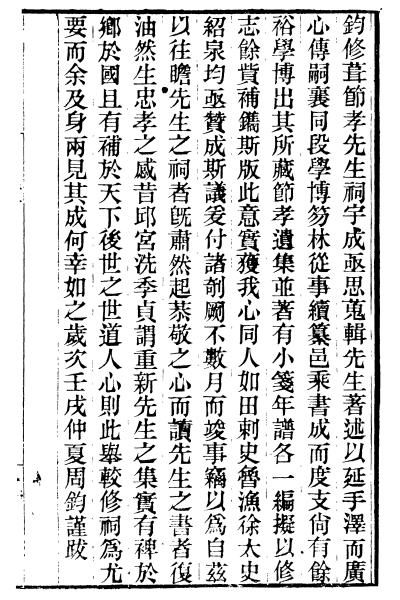 鈞修葺節孝先生祠宇成亟思蒐輯先生著述以延手澤而廣
心傳嗣襄同段學博笏林從事續纂邑乘書成而度支尙有餘
裕學博出其所藏節孝遺集並著有小箋年譜各一編擬以修
志餘貲補鐫斯版此意實獲我心同人如田刺史魯漁徐太史
紹泉均亟贊成斯議爰付諸剞劂不數月而竣事竊以爲自茲
以往瞻先生之祠者旣肅然起恭敬之心而讀先生之書者復
油然生忠孝之感昔邱宮洗季貞謂重新先生之集實有裨於
鄉於國且有補於天下後世之世道人心則此舉較修祠爲尤
要而余及身兩見其成何幸如之歲次壬戌仲夏周鈞謹跋